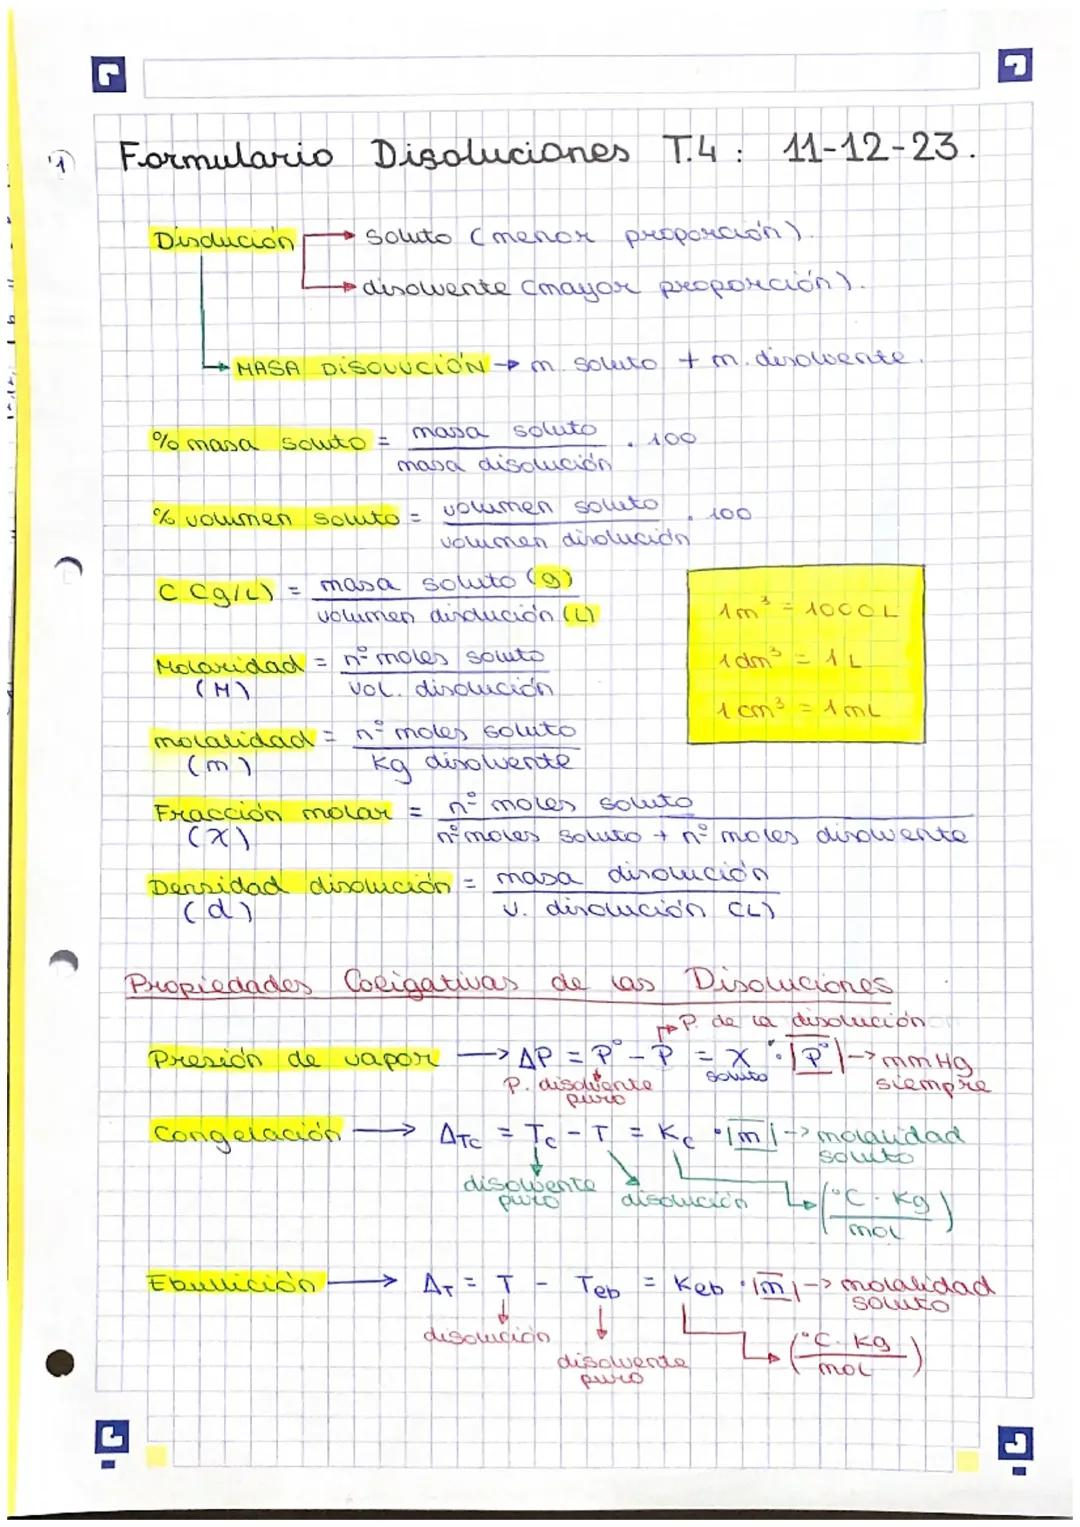 1
Formulario Disoluciones T.4: 11-12-23.
Disolución → soluto (menor proporción).
→ disolvente (mayor proporción).
→ MASA DISOLUCIÓN → m. soluto + m. disolvente.
% masa soluto = masa soluto / masa disolución · 100
% volumen soluto = volumen soluto / volumen disolución · 100
C (g/L) = masa soluto (g) / volumen disolución (L)
1 m³ = 1000 L
1 dm³ = 1 L
1 cm³ = 1 mL
Molaridad (M) = nº moles soluto / vol. disolución
molalidad (m) = nº moles soluto / Kg disolvente
Fracción molar (X) = nº moles soluto / nº moles soluto + nº moles disolvente
Densidad disolución (d) = masa disolución / v. disolución (L)
Propiedades Coligativas de las Disoluciones
P. de la disolución
Presión de vapor → ΔP = P° - P = X soluto · |P°| → mmHg siempre
P. disolvente puro
Congelación → ΔTc = Tc - T = Kc · |m| → molalidad soluto
disolvente puro
disolución
(°C · Kg / mol)
Ebullición → ΔT = T - Teb = Keb · |m| → molalidad soluto
disolución
disolvente puro
(°C · Kg / mol)